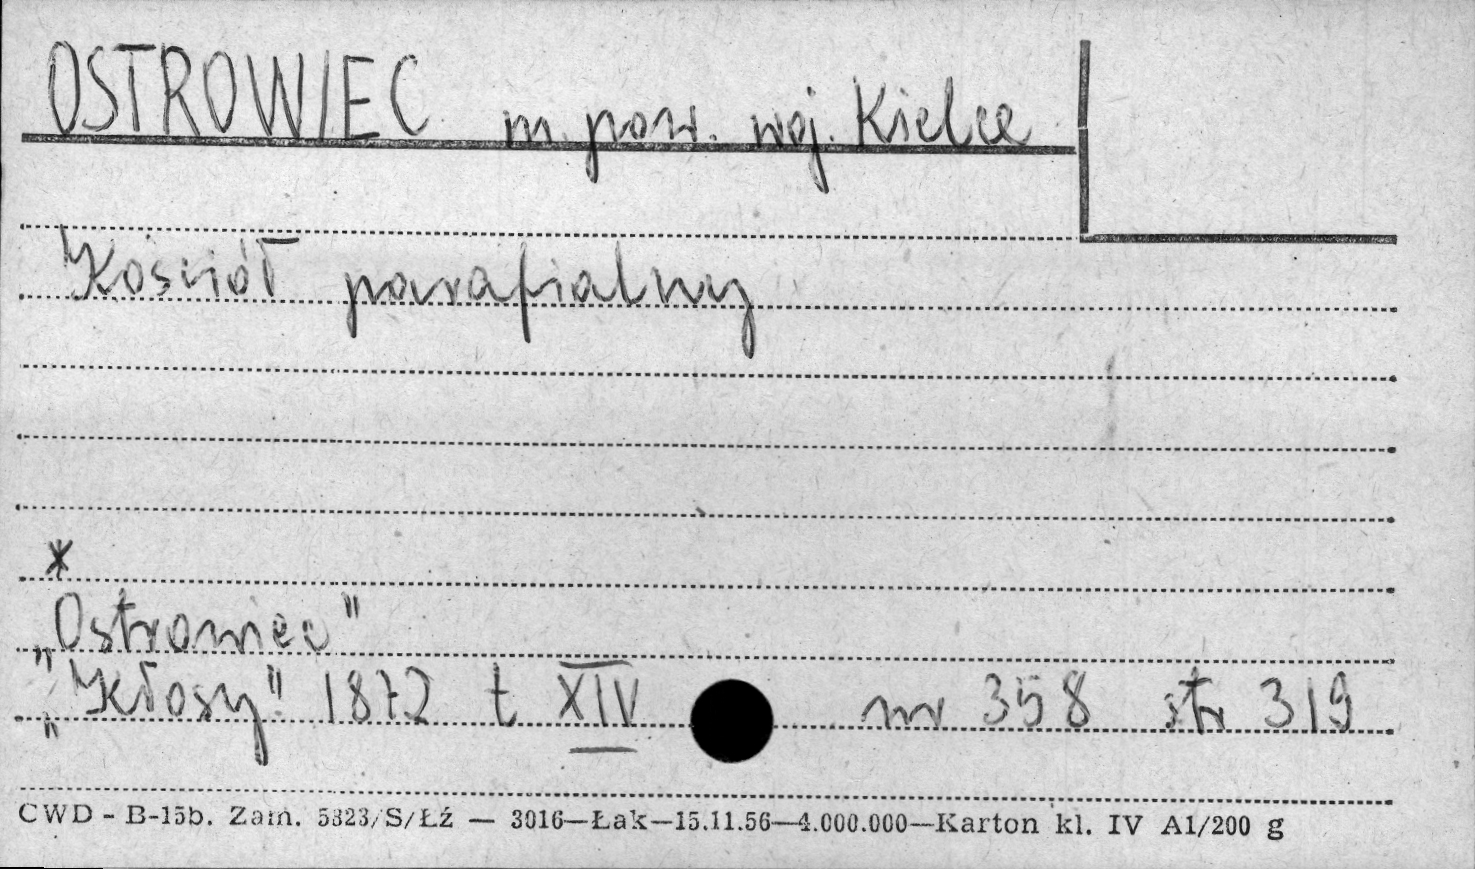 OSTROWIEC m. pow. woj. Kielce
Kościół parafialny
*
„Ostrowiec"
„Kłosy" 1872 t XIV nr 358 str 319
CWD - B-15b. Zam. 5323/S/Łź — 3016—Łak—15.11.56—4.000.000—Karton kl. IV A1/200 g